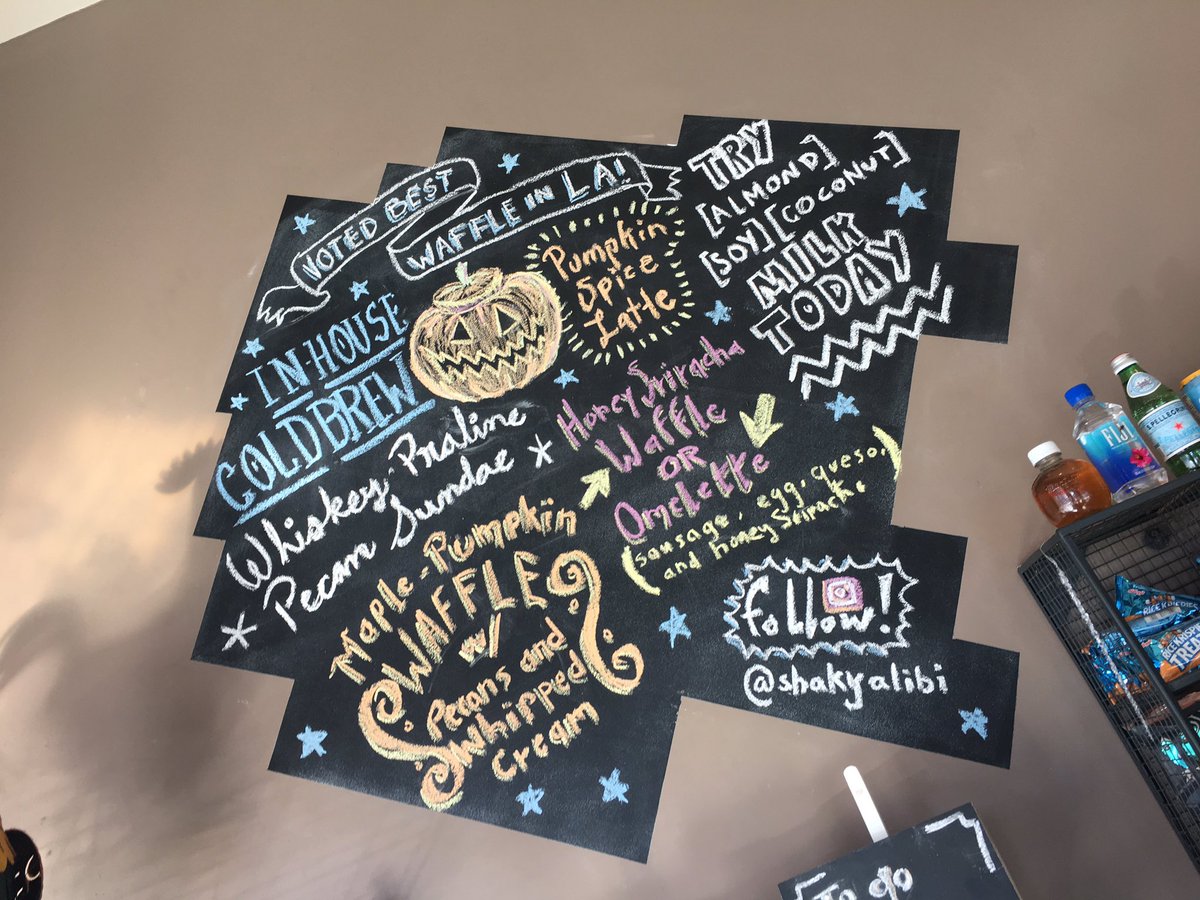 VOTED BEST
WAFFLE IN LA!
IN-HOUSE
COLDBREW
Pumpkin
Spice
Latte
TRY
[ALMOND]
[SOY] [COCONUT]
MILK
TODAY
Whiskey Praline
Pecan Sundae
Honey Sriracha
Waffle
OR
Omelette
(sausage, egg, queso,
and honey Sriracha)
Maple-Pumpkin
WAFFLE
w/
Pecans and
Whipped
Cream
follow!
@shakyalibi
FIJI
S.PELLEGRINO
RICE KRISPIES
TREATS
To go